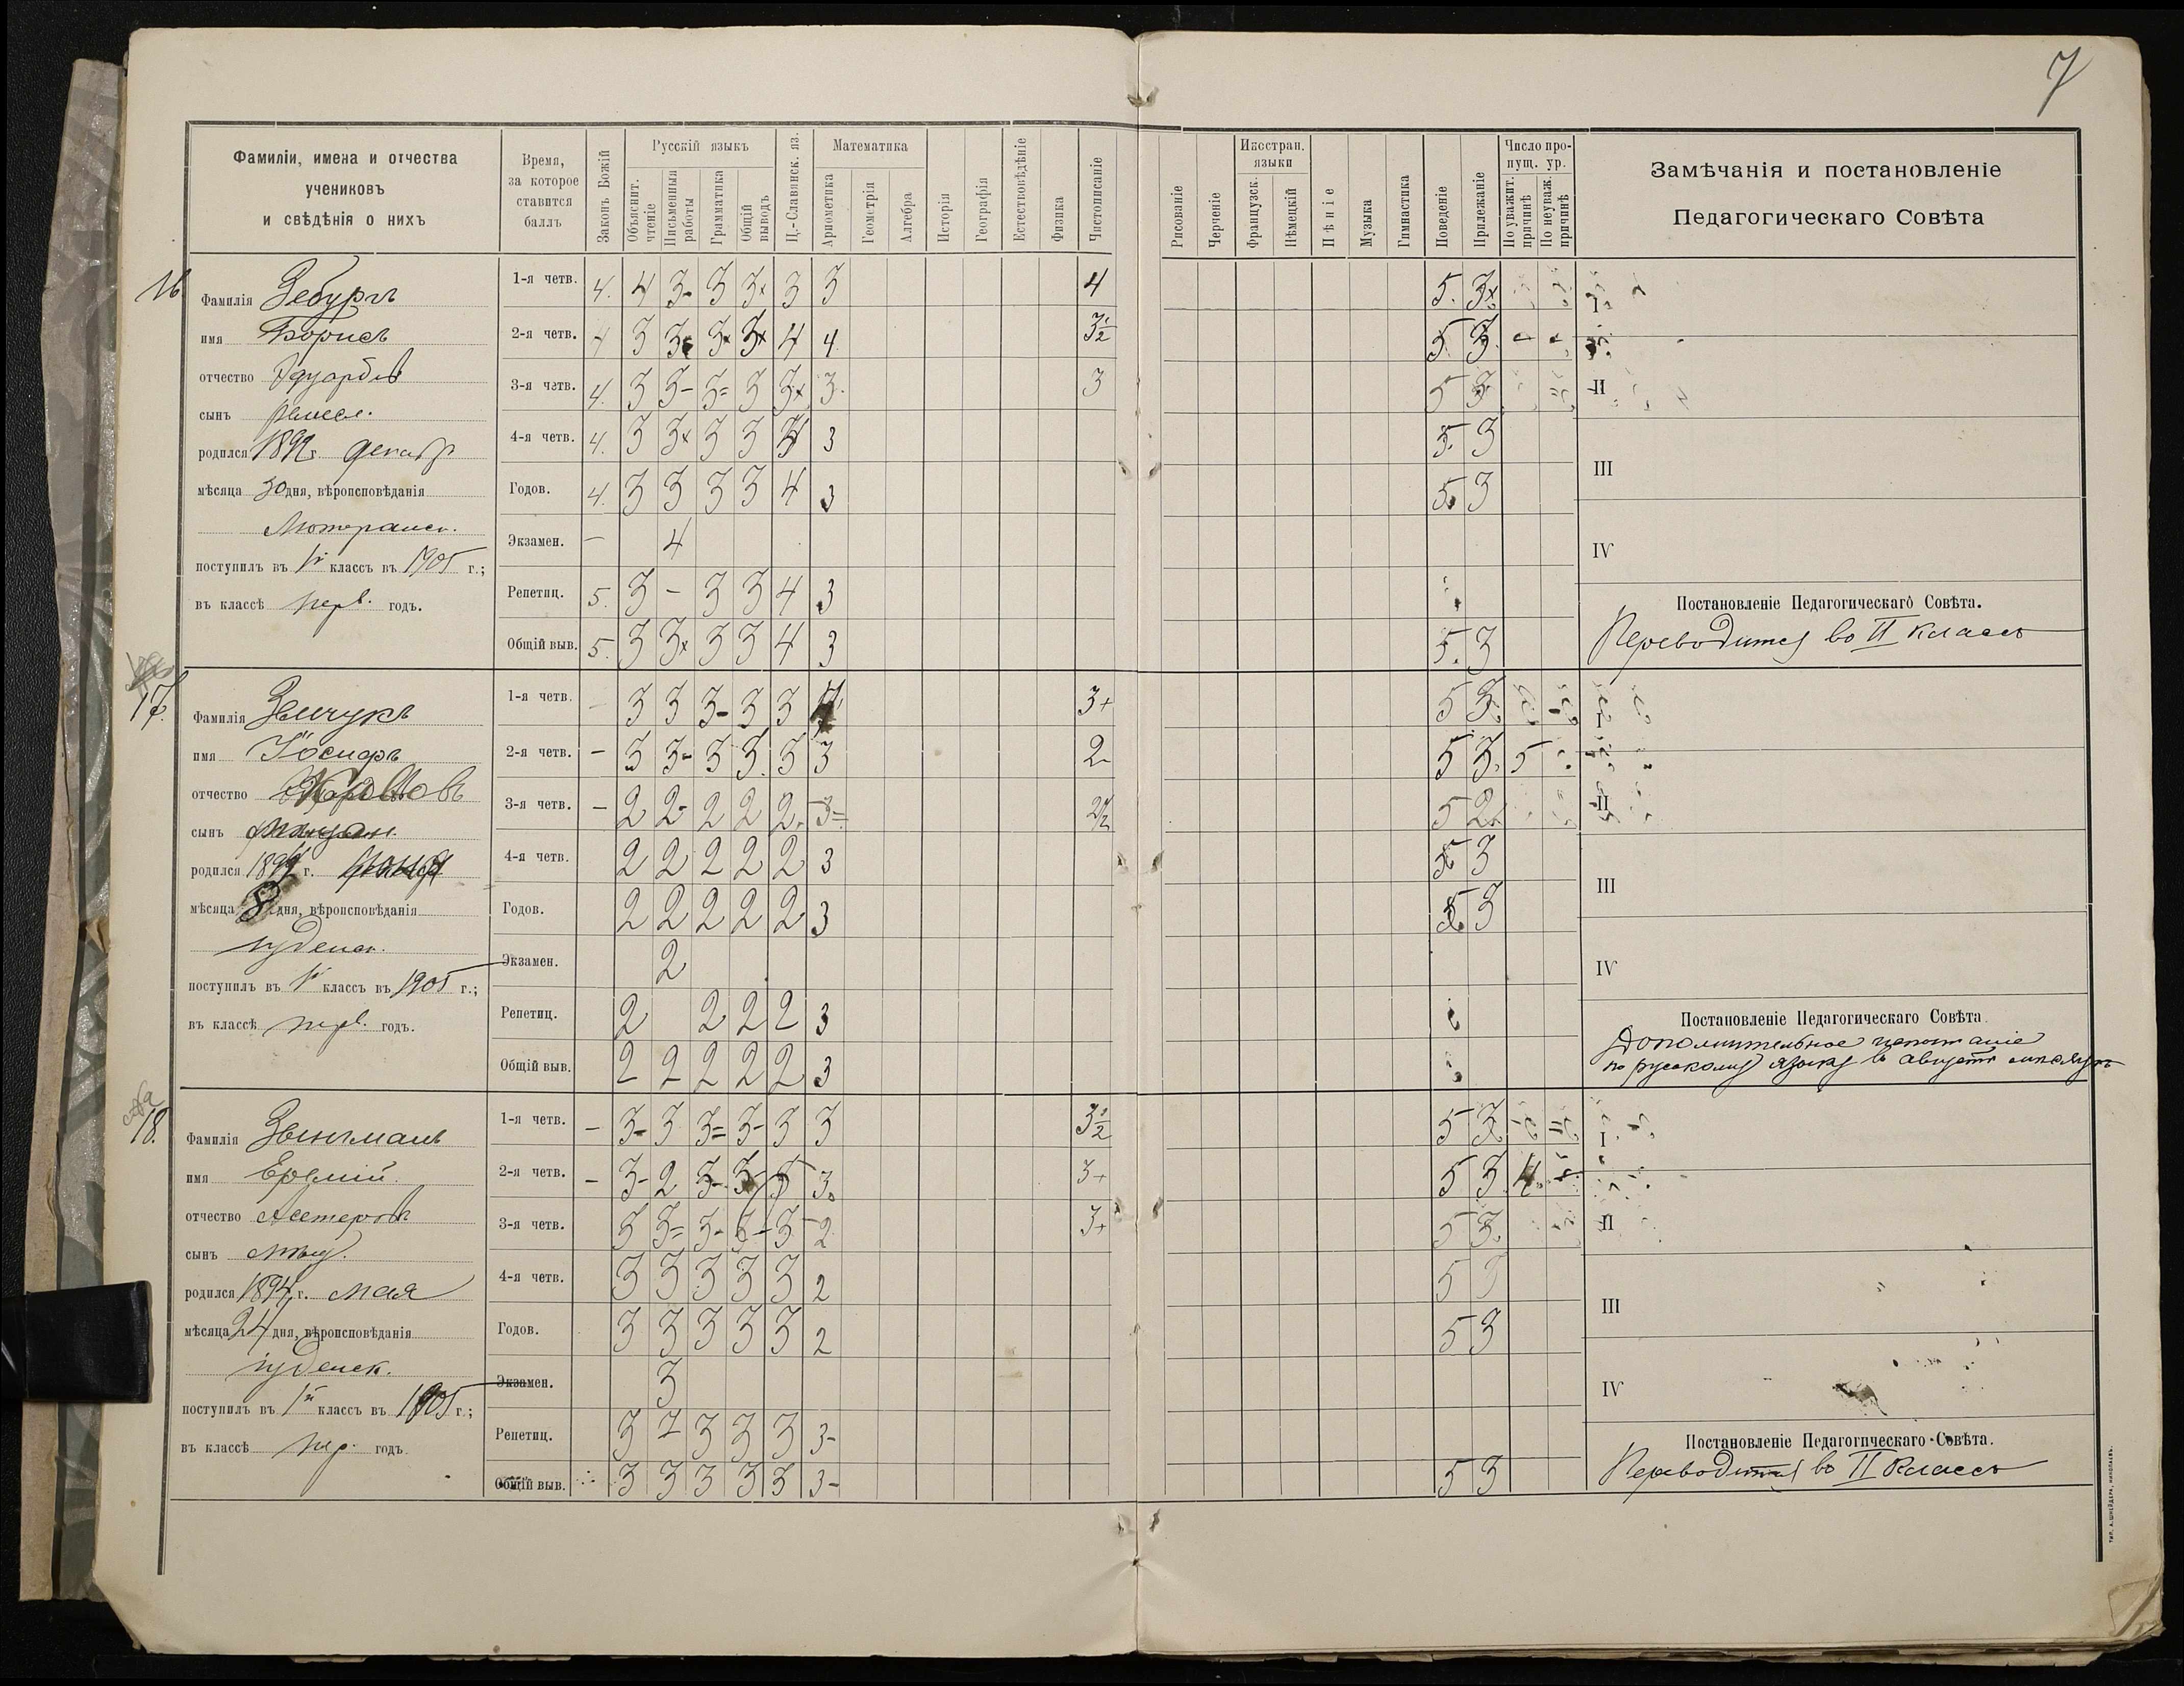 7
Фамиліи, имена и отчества
учениковъ
и свѣдѣнія о нихъ
Время,
за которое
ставится
баллъ
Законъ Божій
Русскій языкъ
Объяснит. чтеніе
Письменныя работы
Грамматика
Общій выводъ
Ц.-Славянск. яз.
Математика
Ариѳметика
Геометрія
Алгебра
Исторія
Географія
Естествовѣдѣніе
Физика
Чистописаніе
Рисованіе
Черченіе
Иностран. языки
Французск.
Нѣмецкій
Пѣніе
Музыка
Гимнастика
Поведеніе
Прилежаніе
Число пропущ. ур.
По уважит. причинѣ
По неуваж. причинѣ
Замѣчанія и постановленіе
Педагогическаго Совѣта
16
Фамилія Зебургъ
имя Борисъ
отчество
сынъ ремесл.
родился 1892 г. декабр
мѣсяца 30 дня, вѣроисповѣданія
Лютеранск.
поступилъ въ 1й классъ въ 1905 г.;
въ классѣ перв. годъ.
1-я четв. 4. 4 3- 3 3× 3 3 4 5. 3× I
2-я четв. 4 3 3 3× 3× 4 4 3½ 5. 3. - -
3-я четв. 4. 3 3- 3= 3 3× 3. 3 5 3 II
4-я четв. 4. 3 3× 3 3 3 5. 3
III
Годов. 4. 3 3 3 3 4 3 5. 3
Экзамен. — 4
IV
Репетиц. 5. 3 - 3 3 4 3
Общій выв. 5. 3 3× 3 3 4 3 5. 3
Постановленіе Педагогическаго Совѣта.
Переводится во II классъ
17.
Фамилія
имя
отчество
сынъ
родился г.
мѣсяца 8 дня, вѣроисповѣданія
іудейск.
поступилъ въ 1й классъ въ 1905 г.;
въ классѣ перв. годъ.
1-я четв. - 3 3 3- 3 3 3+ 5 3 I
2-я четв. - 3 3- 3 3. 3 3 2- 5 3. 5
3-я четв. - 2 2- 2 2 2. 3= 2½ 5 2 II
4-я четв. 2 2 2 2 2 3 3
III
Годов. 2 2 2 2 2 3 3
Экзамен. 2
IV
Репетиц. 2 2 2 2 3
Общій выв. 2 2 2 2 2 3
Постановленіе Педагогическаго Совѣта.
Дополнительное испытаніе
по русскому языку въ августѣ
18.
Фамилія
имя Еремій
отчество
сынъ мѣщ.
родился 1894 г. мая
мѣсяца 24 дня, вѣроисповѣданія
іудейск.
поступилъ въ 1й классъ въ 1905 г.;
въ классѣ пер. годъ.
1-я четв. - 3- 3 3= 3- 3 3 3½ 5 3 I
2-я четв. - 3- 2 3- 3 3. 3+ 5 3 4
3-я четв. 3 3= 3- 3 2 3+ 5 3 II
4-я четв. 3 3 3 3 3 2 5 3
III
Годов. 3 3 3 3 3 2 5 3
Экзамен. 3
IV
Репетиц. 3 3 3 3 3-
Общій выв. 3 3 3 3 3 3- 5 3
Постановленіе Педагогическаго Совѣта.
Переводится во II классъ
ТИП. А. ШНЕЙДЕРА, НИКОЛАЕВЪ.